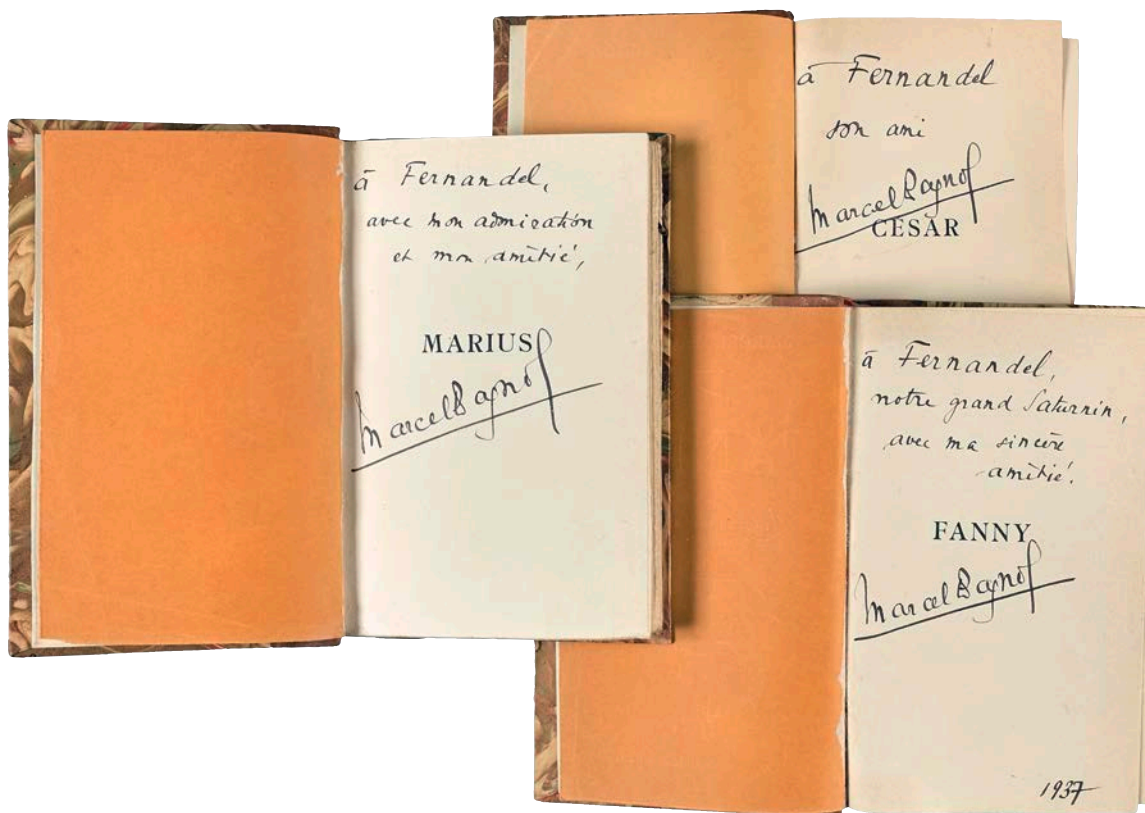 à Fernandel,
avec mon admiration
et mon amitié,
MARIUS
Marcel Pagnol
à Fernandel
son ami
Marcel Pagnol
CÉSAR
à Fernandel,
notre grand Saturnin,
avec ma sincère
amitié.
FANNY
Marcel Pagnol
1937